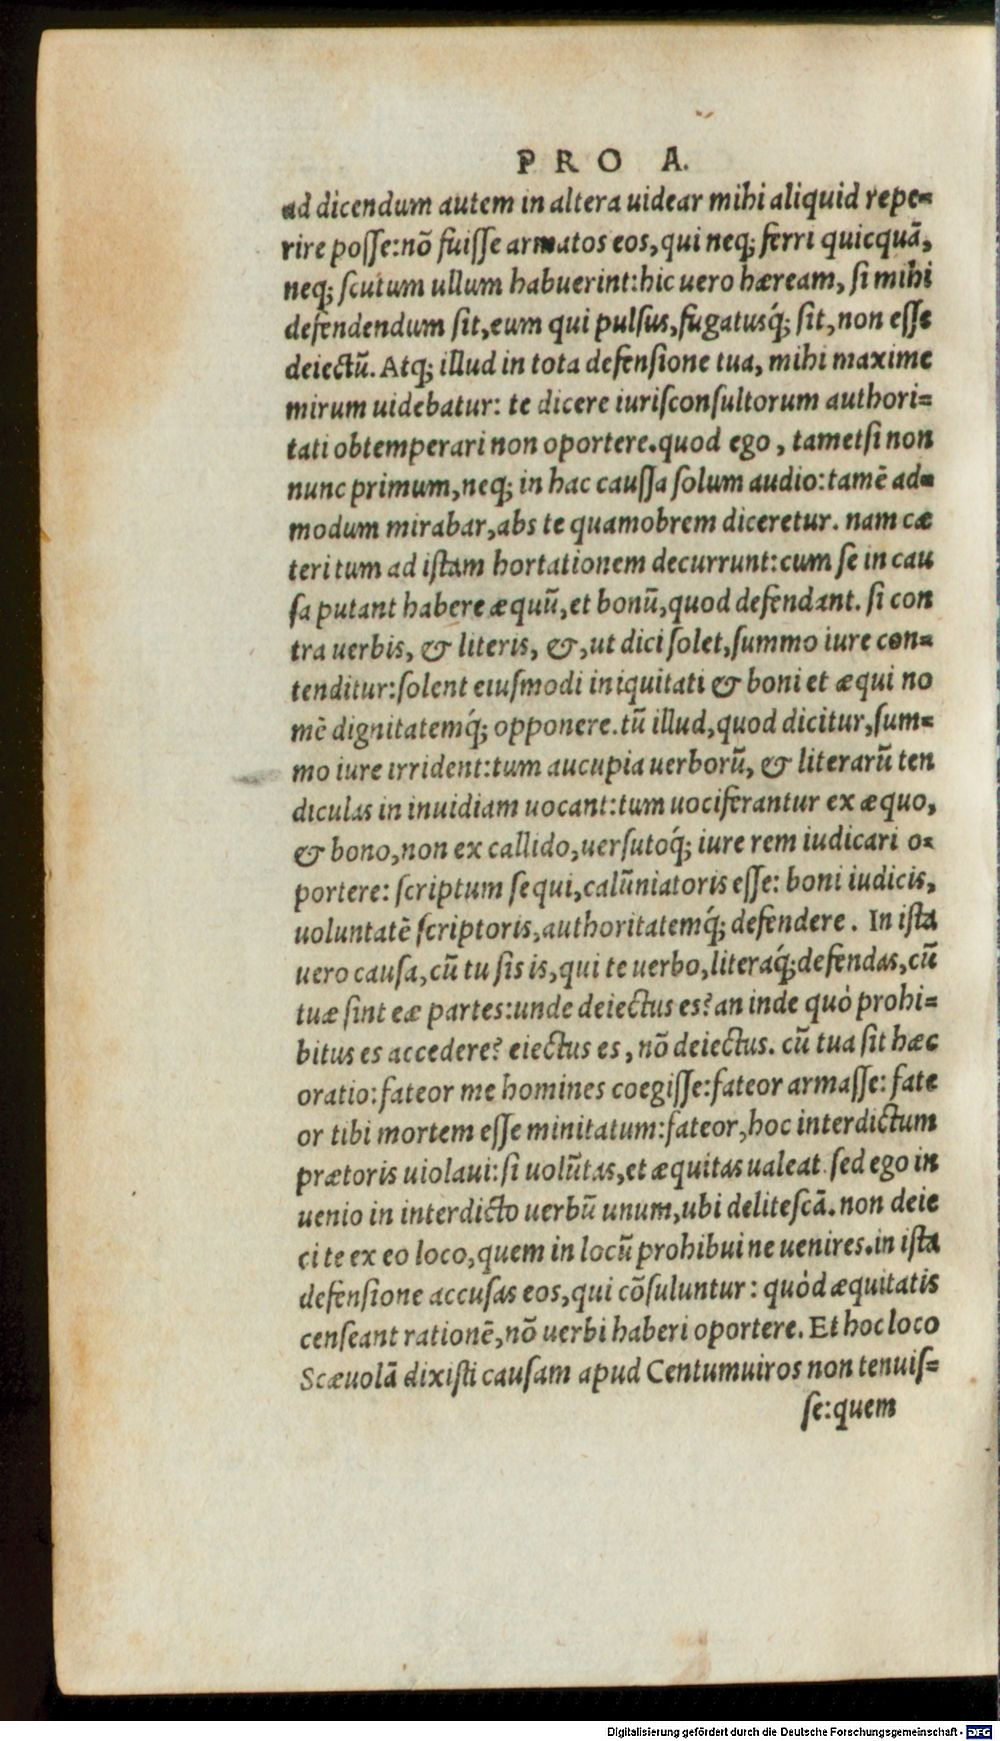 PRO A.
ad dicendum autem in altera uidear mihi aliquid repe=
rire posse:nõ fuisse armatos eos,qui neq; ferri quicquã,
neq; scutum ullum habuerint:hic uero hæream, si mihi
defendendum sit,eum qui pulsus,fugatusq́; sit,non esse
deiectũ. Atq; illud in tota defensione tua, mihi maxime
mirum uidebatur: te dicere iurisconsultorum authori=
tati obtemperari non oportere.quod ego, tametsi non
nunc primum,neq; in hac caussa solum audio:tamẽ ad=
modum mirabar,abs te quamobrem diceretur. nam cæ
teri tum ad istam hortationem decurrunt:cum se in cau
sa putant habere æquũ,et bonũ,quod defendant. si con
tra uerbis, & literis, &,ut dici solet,summo iure con=
tenditur:solent eiusmodi iniquitati & boni et æqui no
mẽ dignitatemq́; opponere.tũ illud,quod dicitur,sum=
mo iure irrident:tum aucupia uerborũ, & literarũ ten
diculas in inuidiam uocant:tum uociferantur ex æquo,
& bono,non ex callido,uersutoq́; iure rem iudicari o=
portere: scriptum sequi,calũniatoris esse: boni iudicis,
uoluntatẽ scriptoris,authoritatemq́; defendere. In ista
uero causa,cũ tu sis is,qui te uerbo,literaq́;defendas,cũ
tuæ sint eæ partes:unde deiectus es?an inde quò prohi=
bitus es accedere? eiectus es, nõ deiectus. cũ tua sit hæc
oratio:fateor me homines coegisse:fateor armasse: fate
or tibi mortem esse minitatum:fateor,hoc interdictum
prætoris uiolaui:si uolũtas,et æquitas ualeat.sed ego in
uenio in interdicto uerbũ unum,ubi delitescã.non deie
ci te ex eo loco,quem in locũ prohibui ne uenires.in ista
defensione accusas eos,qui cõsuluntur: quòd æquitatis
censeant rationẽ,nõ uerbi haberi oportere. Et hoc loco
Scæuolã dixisti causam apud Centumuiros non tenuis=
se:quem
Digitalisierung gefördert durch die Deutsche Forschungsgemeinschaft - DFG